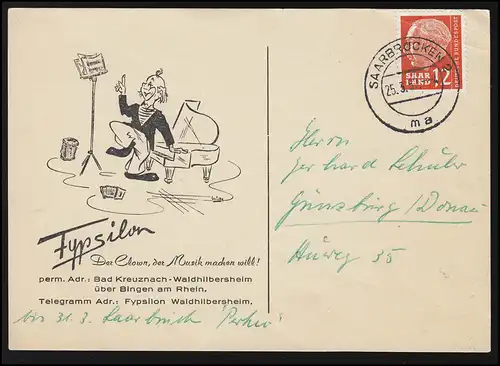 SAARBRÜCKEN 2
25.3.
ma
SAAR
LAND
12
Herrn
Gerhard Schuler
Günzburg/Donau
35
Fypsilon
Der Clown, der Musik machen will!
perm. Adr.: Bad Kreuznach-Waldhilbersheim
über Bingen am Rhein.
Telegramm Adr.: Fypsilon Waldhilbersheim.
bis 31.3. Saarbrück